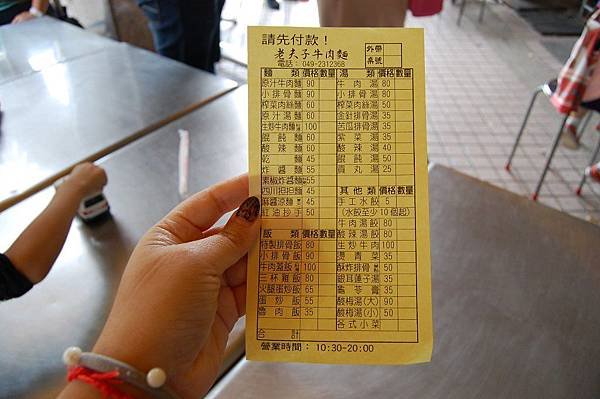 請先付款！
老夫子牛肉麵
電話：049-2312368
外帶
桌號
麵 類 價格 數量 湯 類 價格 數量
原汁牛肉麵 90 牛肉湯 80
小排骨麵 90 小排骨湯 80
榨菜肉絲麵 60 榨菜肉絲湯 50
原汁湯麵 60 金針排骨湯 35
生炒牛肉麵 100 苦瓜排骨湯 35
餛飩麵 60 紫菜湯 35
酸辣麵 60 酸辣湯 40
乾麵 45 餛飩湯 50
炸醬麵 55 貢丸湯 25
素椒炸醬麵 55
四川担担麵 45 其他類 價格 數量
麻醬涼麵 45 手工水餃 5
紅油抄手 50 (水餃至少10個起)
牛肉湯餃 80
飯 類 價格 數量 酸辣湯餃 80
特製排骨飯 80 生炒牛肉 100
小排骨飯 90 燙青菜 35
牛肉蓋飯 100 酥炸排骨 50
三杯雞飯 80 銀耳蓮子湯 35
火腿蛋炒飯 65 龜苓膏 35
蛋炒飯 55 酸梅湯(大) 90
魯肉飯 35 酸梅湯(小) 50
各式小菜
合計
營業時間：10:30-20:00